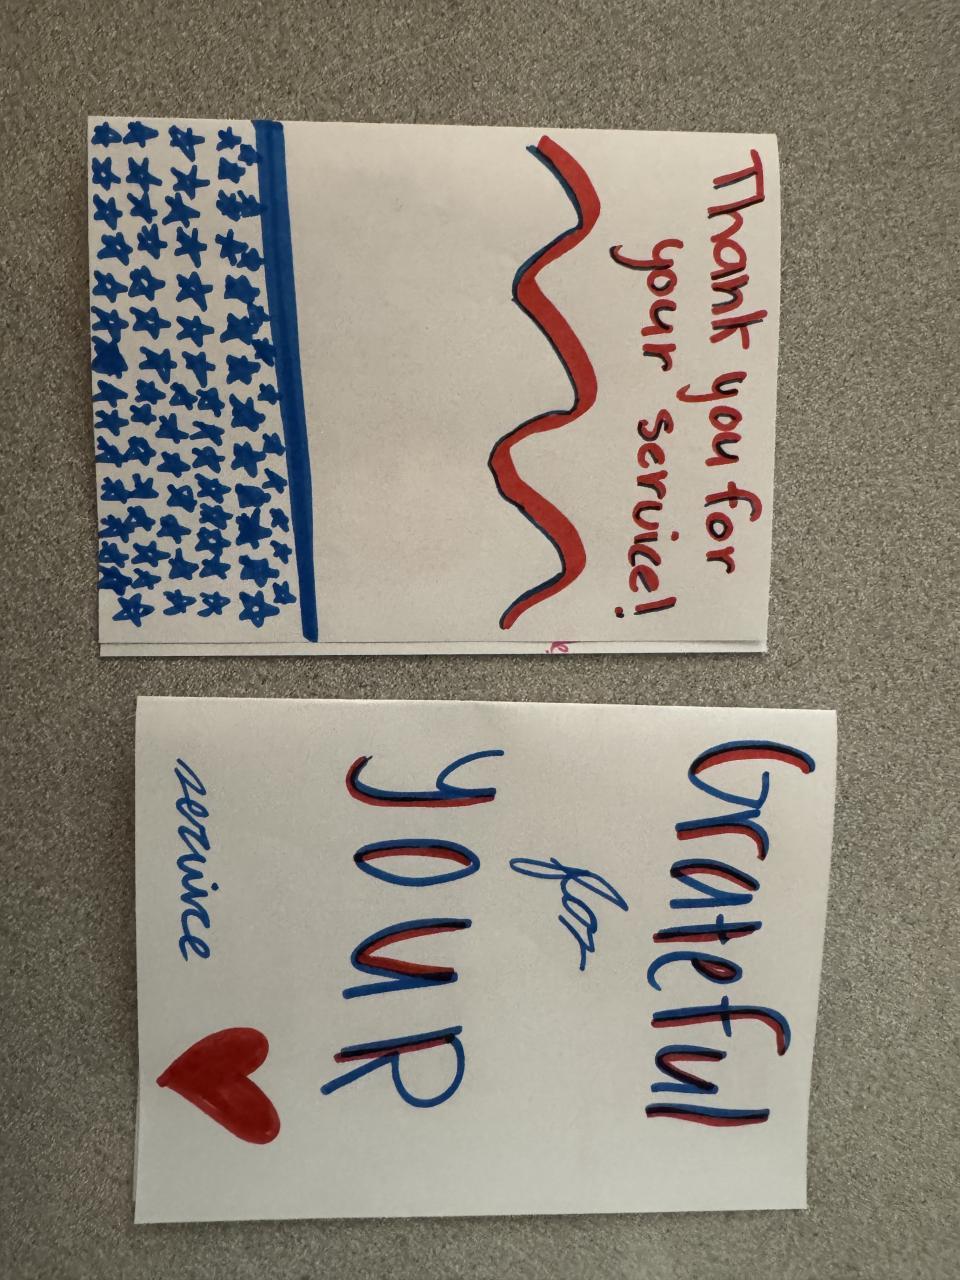 Thank you for
your service!
Grateful
for
your
service